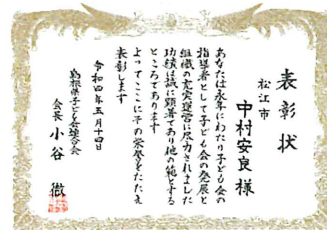 表彰状
松江市
中村安良 様
あなたは永年にわたり子ども会の
指導者として子ども会の発展と
組織の充実運営に尽力されました
功績は誠に顕著であり他の範とする
ところであります
よってここにその栄誉をたたえ
表彰します
令和四年五月十四日
島根県子ども会連合会
会長 小谷 徹